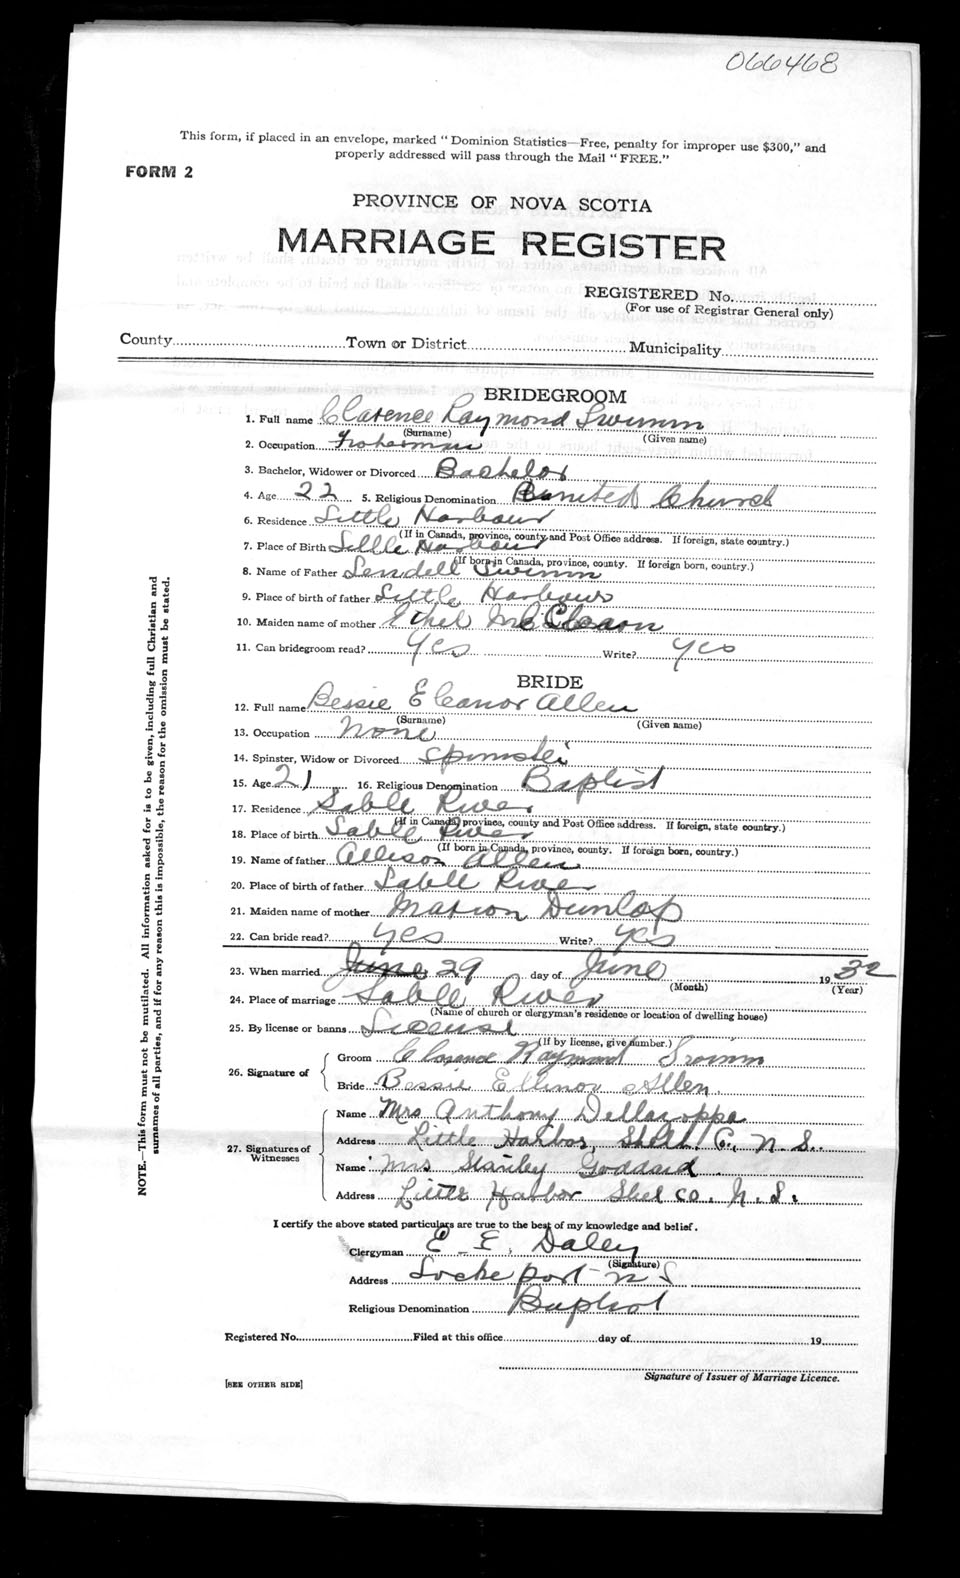 066468
This form, if placed in an envelope, marked "Dominion Statistics—Free, penalty for improper use $300," and
properly addressed will pass through the Mail "FREE."
FORM 2
PROVINCE OF NOVA SCOTIA
MARRIAGE REGISTER
REGISTERED No.
(For use of Registrar General only)
County Town or District Municipality
BRIDEGROOM
1. Full name Clarence Raymond Swimm
(Surname) (Given name)
2. Occupation Fisherman
3. Bachelor, Widower or Divorced Bachelor
4. Age 22 5. Religious Denomination United Church
6. Residence Little Harbour
(If in Canada, province, county and Post Office address. If foreign, state country.)
7. Place of Birth Little Harbour
(If born in Canada, province, county. If foreign born, country.)
8. Name of Father Lendell Swimm
9. Place of birth of father Little Harbour
10. Maiden name of mother Ethel
11. Can bridegroom read? Yes Write? Yes
BRIDE
12. Full name Bessie Eleanor Allen
(Surname) (Given name)
13. Occupation None
14. Spinster, Widow or Divorced Spinster
15. Age 21 16. Religious Denomination Baptist
17. Residence Sable River
(If in Canada, province, county and Post Office address. If foreign, state country.)
18. Place of birth Sable River
(If born in Canada, province, county. If foreign born, country.)
19. Name of father Allison Allen
20. Place of birth of father Sable River
21. Maiden name of mother Marion Dunlop
22. Can bride read? yes Write? yes
23. When married June 29 day of June 1932
(Month) (Year)
24. Place of marriage Sable River
(Name of church or clergyman's residence or location of dwelling house)
25. By license or banns License
(If by license, give number.)
26. Signature of
Groom Clarence Raymond Swimm
Bride Bessie Ellinor Allen
27. Signatures of Witnesses
Name Mrs Anthony Dellazoppa
Address Little Harbor, Shelb. Co., N. S.
Name Mrs Stanley Goddard
Address Little Harbor Shel Co. N. S.
I certify the above stated particulars are true to the best of my knowledge and belief.
Clergyman E. E. Daley
(Signature)
Address Lockeport N S
Religious Denomination Baptist
Registered No. Filed at this office day of 19
Signature of Issuer of Marriage Licence.
[SEE OTHER SIDE]
NOTE.—This form must not be mutilated. All information asked for is to be given, including full Christian and
surnames of all parties, and if for any reason this is impossible, the reason for the omission must be stated.